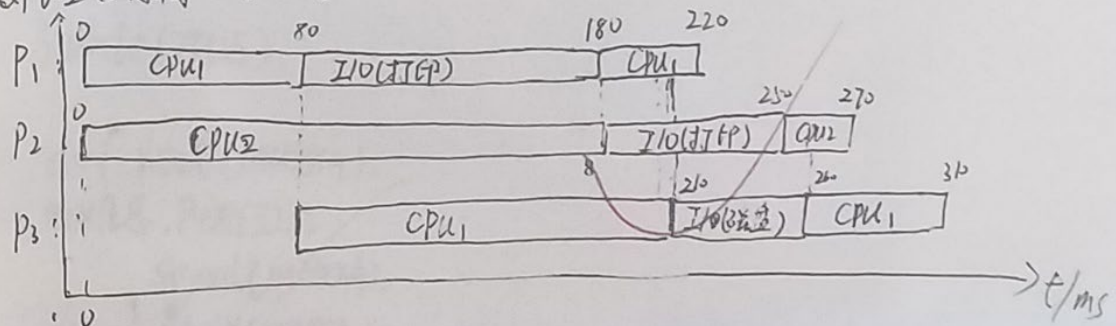 0 80 180 220
P1: CPU1 I/O(打印) CPU1
0 250 270
P2 CPU2 I/O(打印) CPU2
8
210 260 310
P3: CPU1 CPU1
t/ms
0